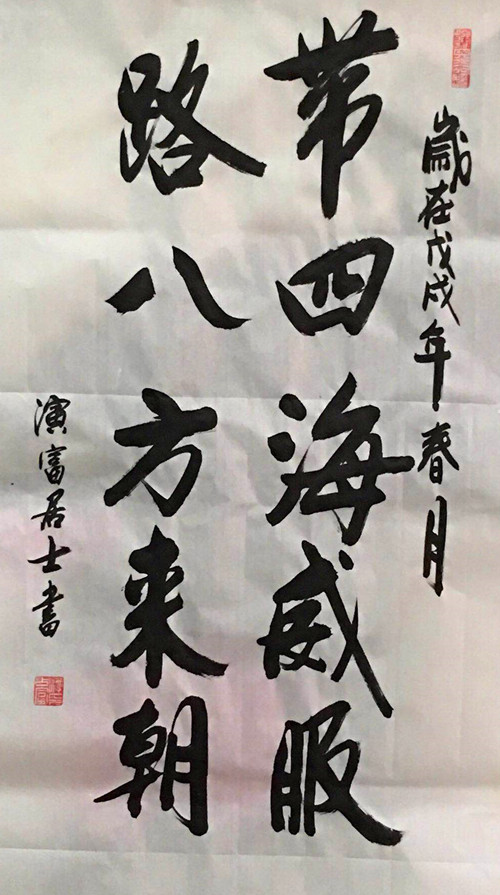 歲在戊戌年春月
带四海威服
路八方来朝
濱富居士書